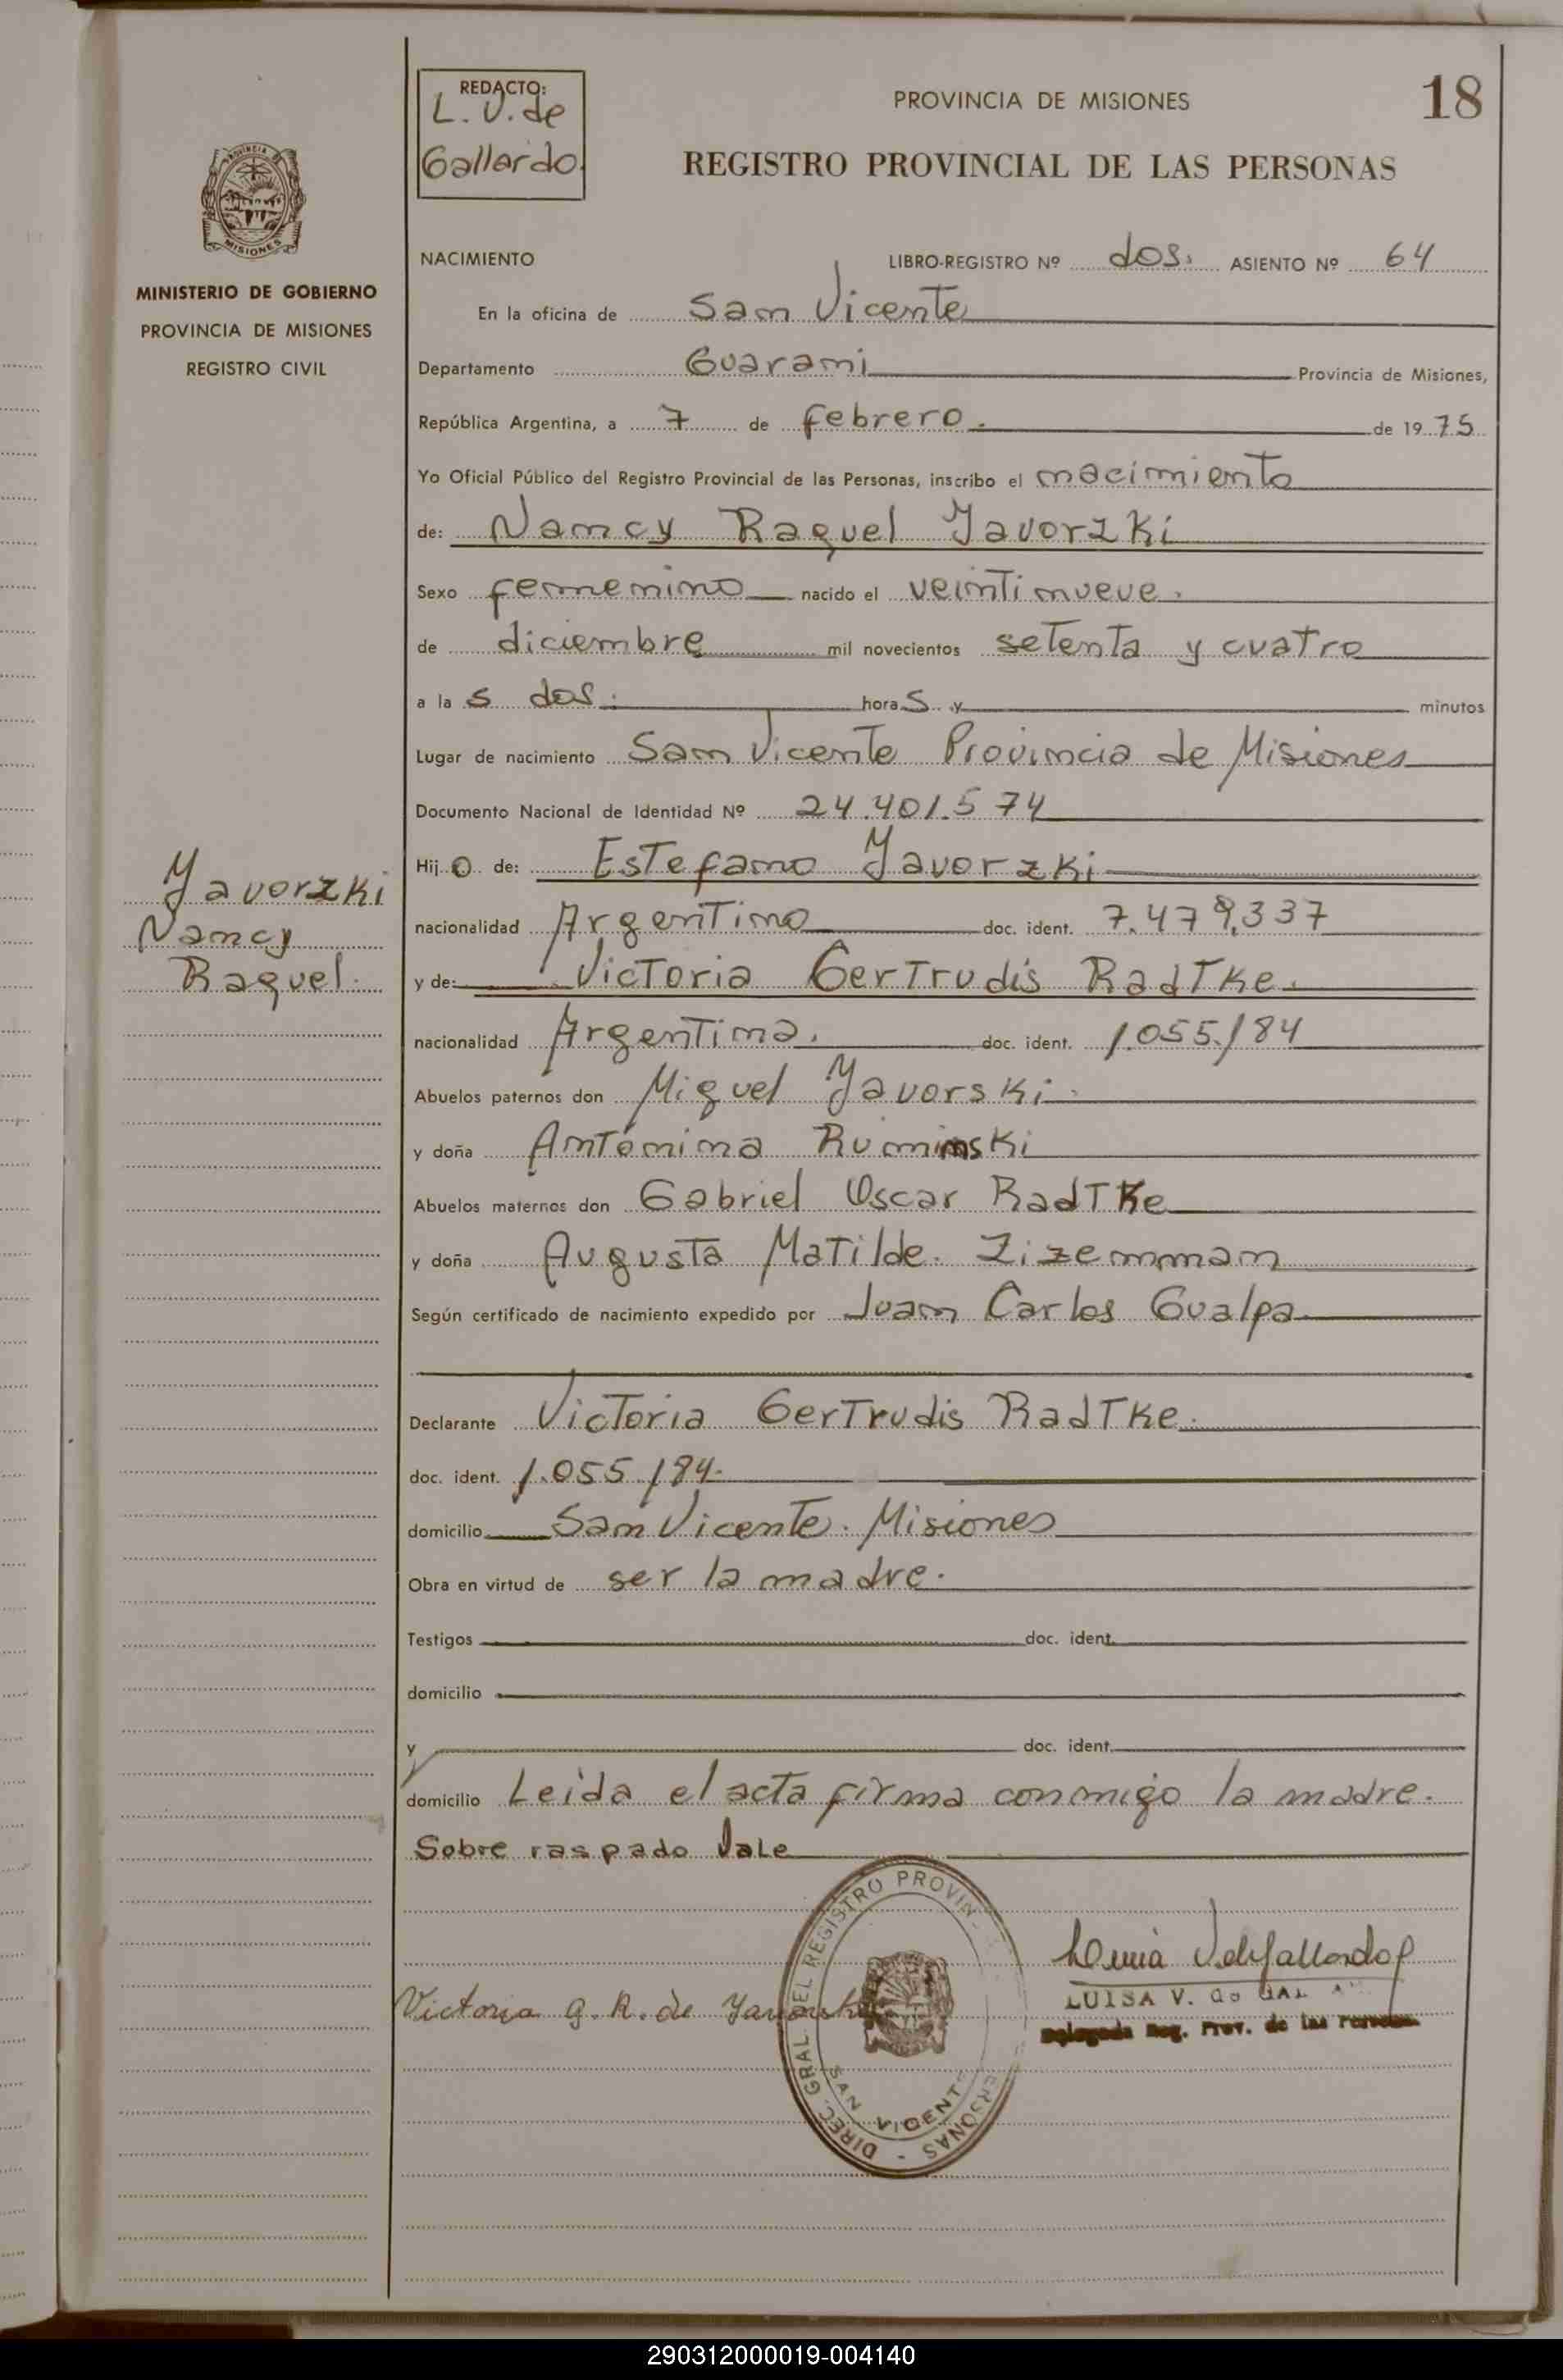 REDACTO:
L. V. de
Gallardo
PROVINCIA DE MISIONES
18
REGISTRO PROVINCIAL DE LAS PERSONAS
PROVINCIA DE
MISIONES
MINISTERIO DE GOBIERNO
PROVINCIA DE MISIONES
REGISTRO CIVIL
NACIMIENTO LIBRO-REGISTRO Nº dos. ASIENTO Nº 64
En la oficina de San Vicente
Departamento Guarani Provincia de Misiones,
República Argentina, a 7 de febrero. de 1975
Yo Oficial Público del Registro Provincial de las Personas, inscribo el nacimiento
de: Nancy Raquel Javorzki
Sexo femenino nacido el veintinueve.
de diciembre mil novecientos setenta y cuatro
a las dos. horas y minutos
Lugar de nacimiento San Vicente Provincia de Misiones
Documento Nacional de Identidad Nº 24.401.574
Hijo de: Estefano Javorzki
Javorzki
Nancy
Raquel.
nacionalidad Argentino doc. ident. 7.479.337
y de: Victoria Gertrudis Radtke.
nacionalidad Argentina. doc. ident. 1.055.184
Abuelos paternos don Miguel Javorski.
y doña Antónina Ruminski
Abuelos maternos don Gabriel Oscar Radtke
y doña Augusta Matilde. Zizemman
Según certificado de nacimiento expedido por Juan Carlos Gualpa
Declarante Victoria Gertrudis Radtke.
doc. ident. 1.055.184.
domicilio San Vicente. Misiones
Obra en virtud de ser la madre.
Testigos doc. ident.
domicilio
y doc. ident.
domicilio Leida el acta firma conmigo la madre.
Sobre raspado Vale
DIREC. GRAL. DEL REGISTRO PROVIN- PERSONAS -
SAN VICENTE
Victoria G. R. de Javorski
Luisa V de Gallardo
LUISA V. de GAL
Delegada Reg. Prov. de las Personas
290312000019-004140